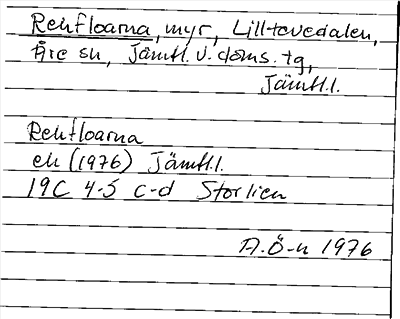 Renfloarna, myr, Lill-tevedalen,
Åre sn, Jämtl. v. doms. tg,
Jämtl.l.
Renfloarna
ek (1976) Jämtl.l.
19C 4-5 c-d Storlien
A.Ö-n 1976